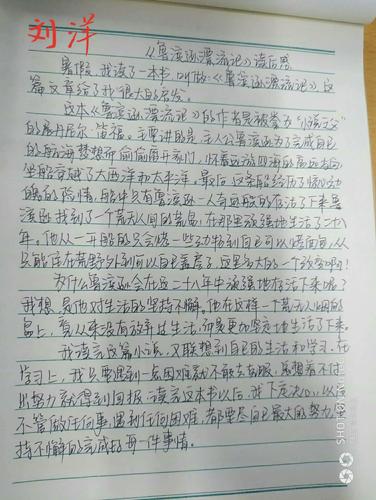 刘洋
《鲁滨逊漂流记》读后感
暑假,我读了一本书,叫做《鲁滨逊漂流记》,这
篇文章给了我很大的启发。
这本《鲁滨逊漂流记》的作者是被拳为"小说之父"
的丹尼尔·笛福。主要讲的是主人公鲁滨逊为了完成自己
的航海梦想而偷偷离开家门,怀着远游四海的高远志向,
坐船穿越了大西洋和太平洋。最后,这条船经历了惊心动
魄的险情,船中只有鲁滨逊一人奇迹般的存活了下来。鲁
滨逊找到了一个荒无人间的荒岛,在那里顽强地生活了二十八
年。他从一开始的只会烧一些动物到自己可以烤面包,从
只能住在荒野外到可以自己盖房子,这是多大的一个改变啊!
为什么鲁滨逊会在这二十八年中顽强地存活下来呢?
我想,是他对生活的坚持不懈。他在这样一个荒无人烟的
岛上,看从来没有放弃过生活,而是更加坚定地生活了下来。
我读完这篇小说,又联想到自己的生活和学习。在
学习上,我只要遇到一点困难就不敢去克服,总想着不付
出努力就得到回报。读完这本书以后,我下定决心,以后
不管做任何事,遇到任何困难,都要尽自己最大的努力,坚
持不懈的完成好每一件事情。
SHOT ON